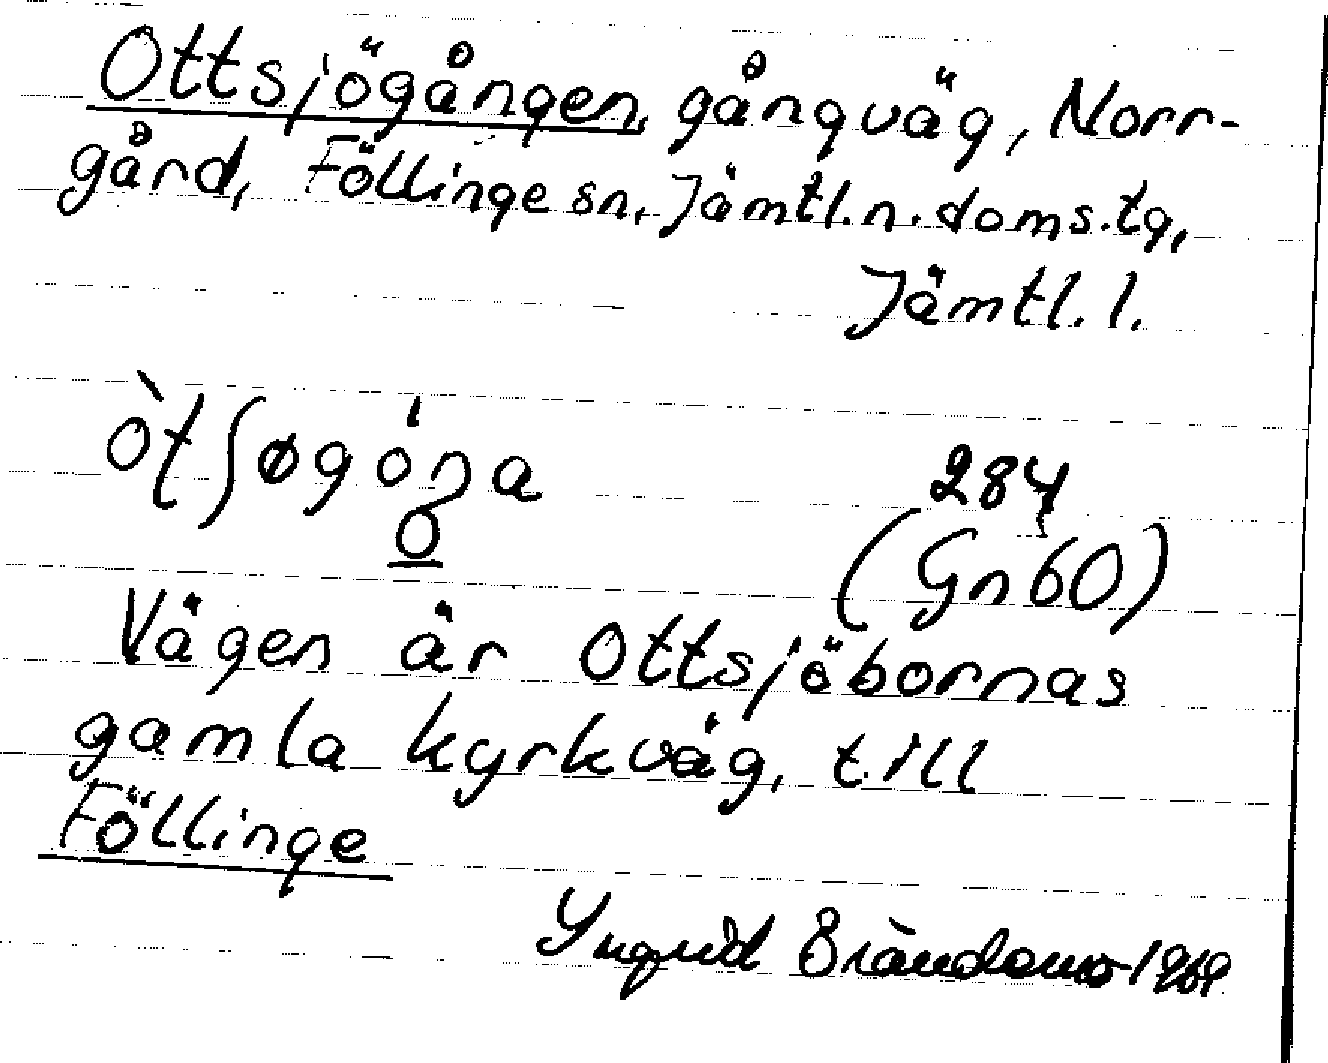 Ottsjögången, gångväg, Norr-
gård, Föllinge sn, Jämtl.n.doms.tg,
Jämtl.l.
òtʃøgóŋa
o
284
(Gn60)
Vägen är Ottsjöbornas
gamla kyrkväg, till
Föllinge
1969